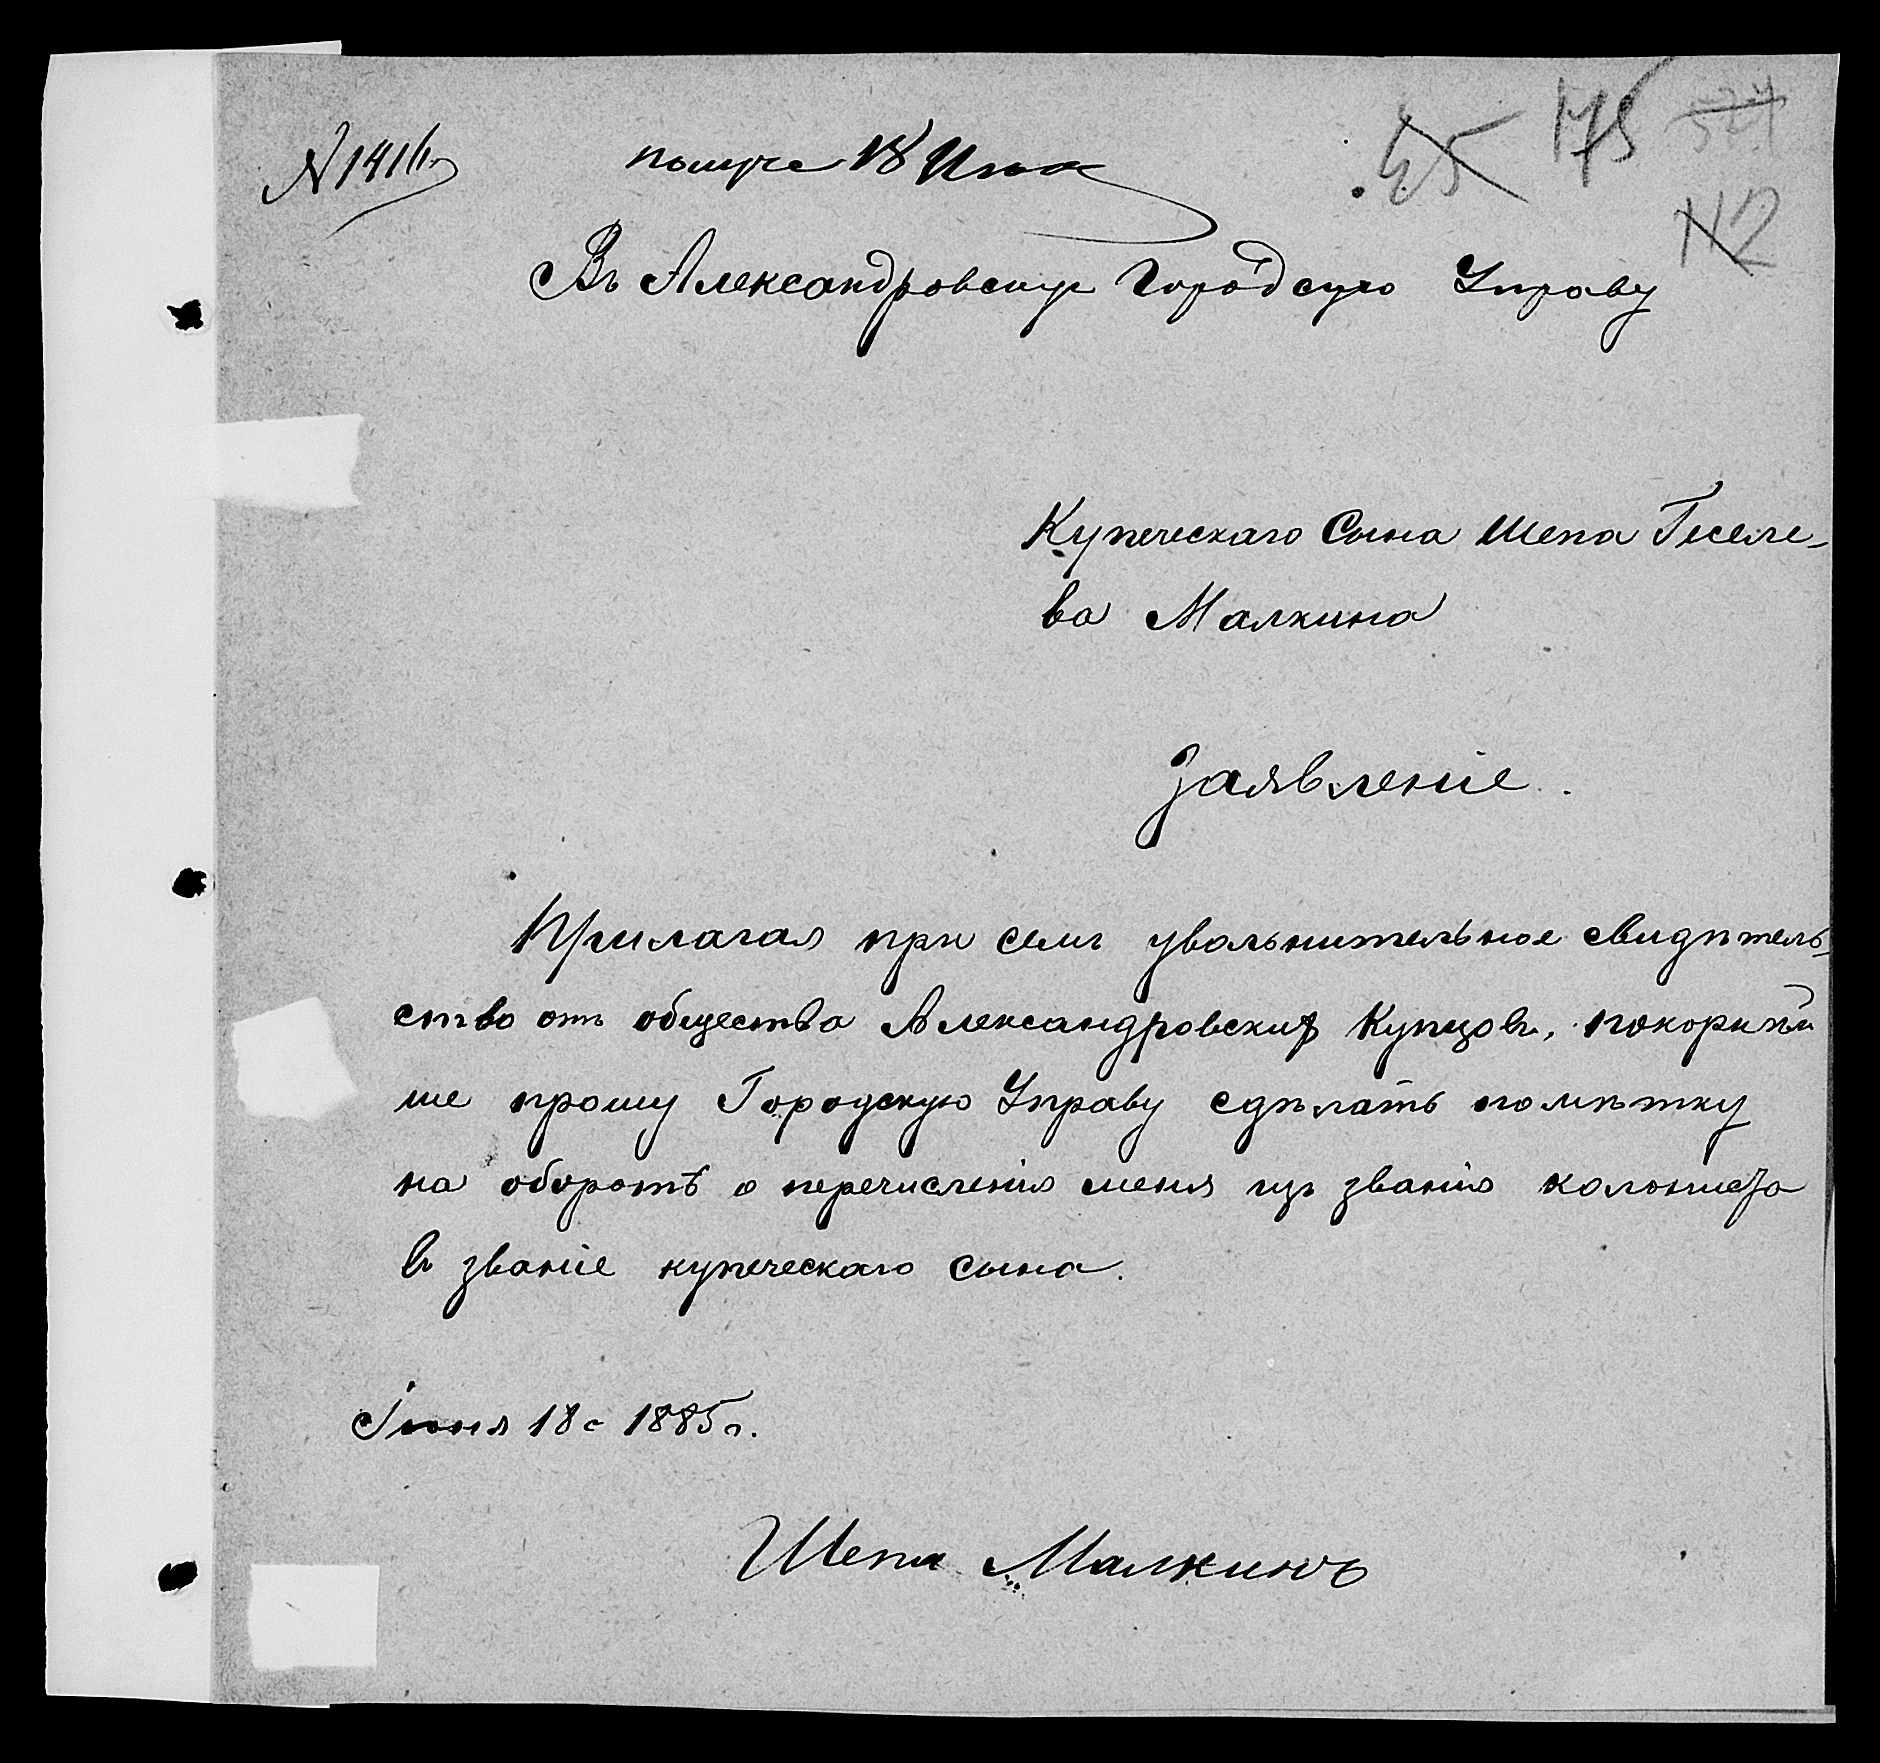 175
45
524
112
№ 1416
получе 18 Июня
Въ Александровскую Городскую Управу
Купеческаго Сына Шепа Геселе-
ва Малкина
Заявленіе.
Прилагая при семъ увольнительное свидѣтель-
ство отъ общества Александровскихъ Купцовъ, покорнѣй
ше прошу Городскую Управу сдѣлать помѣтку
на оборотѣ о перечисленіи меня изъ званія колониста
въ званіе купеческаго сына.
Іюня 18 1885 г.
Шепа Малкинъ